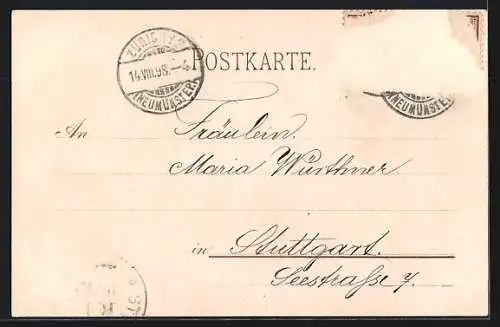 POSTKARTE.
ZÜRICH
14.VIII.98.–4
(NEUMÜNSTER)
(NEUMÜNSTER)
An Fräulein.
Maria Würthner.
in Stuttgart.
Seestraße 7.